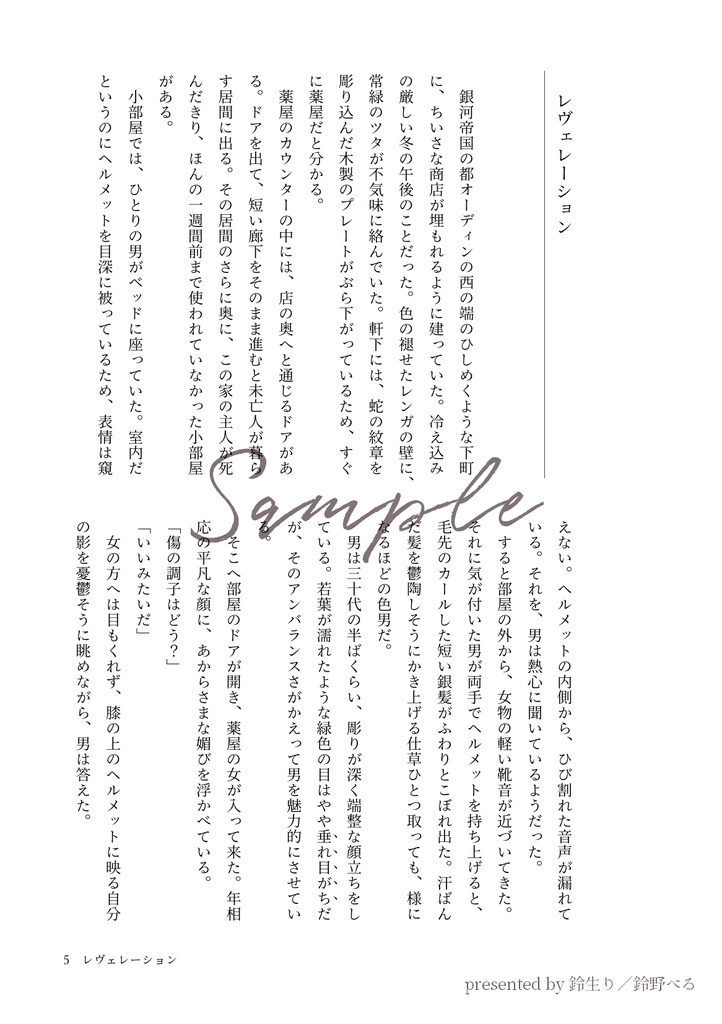 レヴェレーション
　銀河帝国の都オーディンの西の端のひしめくような下町
に、ちいさな商店が埋もれるように建っていた。冷え込み
の厳しい冬の午後のことだった。色の褪せたレンガの壁に、
常緑のツタが不気味に絡んでいた。軒下には、蛇の紋章を
彫り込んだ木製のプレートがぶら下がっているため、すぐ
に薬屋だと分かる。
　薬屋のカウンターの中には、店の奥へと通じるドアがあ
る。ドアを出て、短い廊下をそのまま進むと未亡人が暮ら
す居間に出る。その居間のさらに奥に、この家の主人が死
んだきり、ほんの一週間前まで使われていなかった小部屋
がある。
　小部屋では、ひとりの男がベッドに座っていた。室内だ
というのにヘルメットを目深に被っているため、表情は窺
えない。ヘルメットの内側から、ひび割れた音声が漏れて
いる。それを、男は熱心に聞いているようだった。
　すると部屋の外から、女物の軽い靴音が近づいてきた。
それに気が付いた男が両手でヘルメットを持ち上げると、
毛先のカールした短い銀髪がふわりとこぼれ出た。汗ばん
だ髪を鬱陶しそうにかき上げる仕草ひとつ取っても、様に
なるほどの色男だ。
　男は三十代の半ばくらい、彫りが深く端整な顔立ちをし
ている。若葉が濡れたような緑色の目はやや垂れ目がちだ
が、そのアンバランスさがかえって男を魅力的にさせてい
る。
　そこへ部屋のドアが開き、薬屋の女が入って来た。年相
応の平凡な顔に、あからさまな媚びを浮かべている。
「傷の調子はどう？」
「いいみたいだ」
　女の方へは目もくれず、膝の上のヘルメットに映る自分
の影を憂鬱そうに眺めながら、男は答えた。
Sample
5　レヴェレーション
presented by 鈴生り／鈴野べる